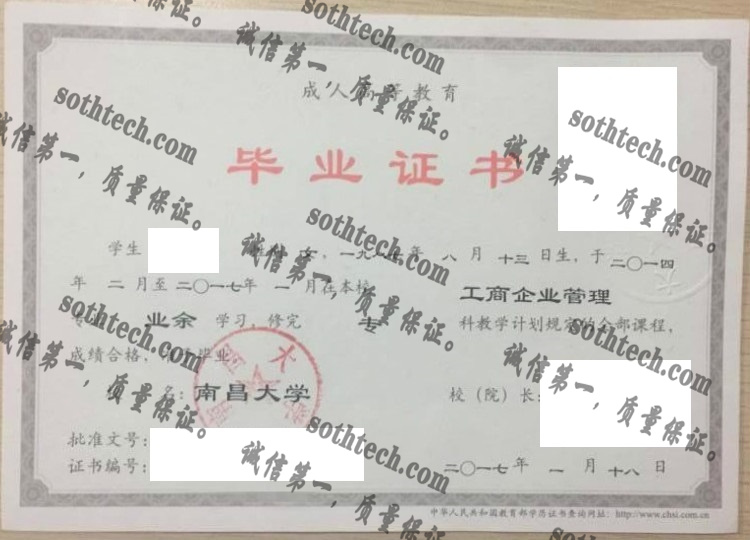 成人高等教育
毕业证书
学生 女，一九 年 八 月 十三 日生，于 二〇一四
年 二 月至 二〇一七 年 一 月在本校 工商企业管理
业余 学习，修完 专 科教学计划规定的全部课程，
成绩合格， 毕业
名：南昌大学 校（院）长：
批准文号：
证书编号： 二〇一七 年 一 月 十八 日
中华人民共和国教育部学历证书查询网址：http://www.chsi.com.cn
sothtech.com
诚信第一，质量保证。
sothtech.com
诚信第一，质量保证。
sothtech.com
诚信第一，质量保证。
sothtech.com
诚信第一，质量保证。
sothtech.com
诚信第一，质量保证。
sothtech.com
诚信第一，质量保证。
sothtech.com
诚信第一，质量保证。
sothtech.com
诚信第一，质量保证。